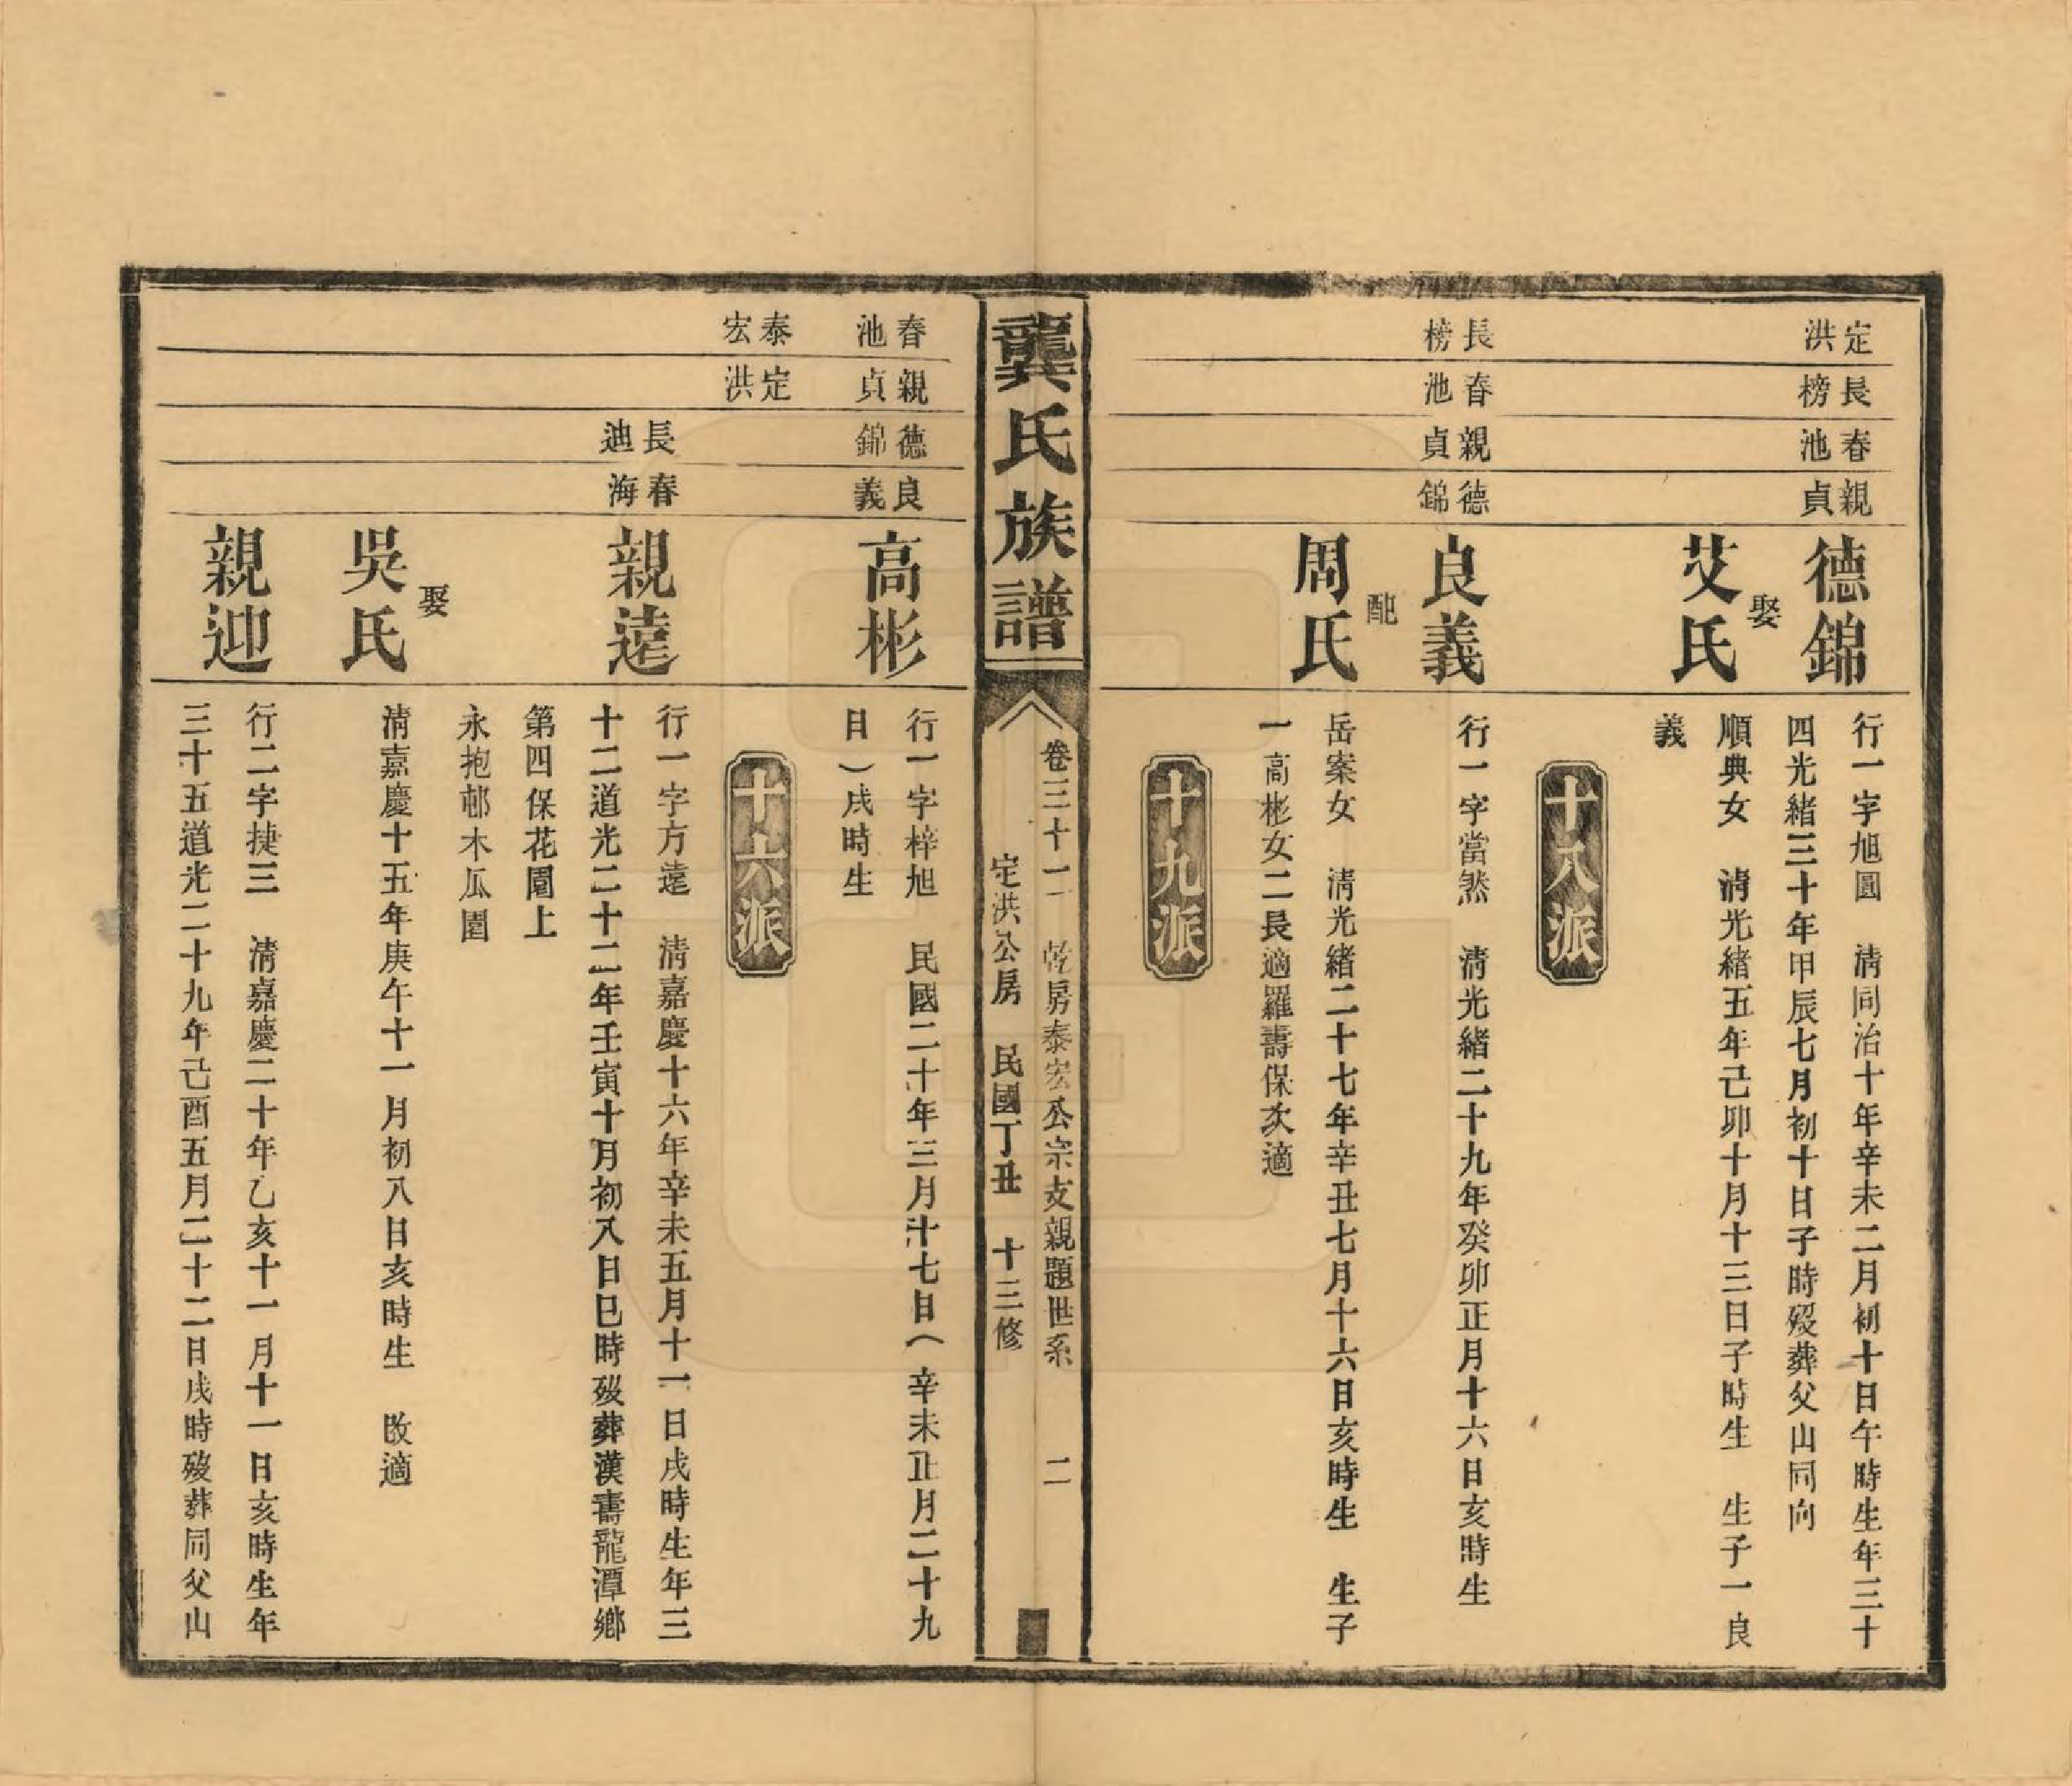 定洪
長榜
春池
親貞
德錦
行一字旭圓　清同治十年辛未二月初十日午時生年三十
四光緒三十年甲辰七月初十日子時歿葬父山同向
娶
艾氏
順典女　清光緒五年己卯十月十三日子時生　生子一良
義
十八派
長榜
春池
親貞
德錦
良義
行一字當煞　清光緒二十九年癸卯正月十六日亥時生
配
周氏
岳案女　清光緒二十七年辛丑七月十六日亥時生　生子
一高彬女二長適羅壽保次適
十九派
龔氏族譜
卷三十一　乾房泰宏公宗支親題世系　二
定洪公房　民國丁丑　十三修
春池
親貞
德錦
良義
高彬
行一字梓旭　民國二十年三月十七日（辛未正月二十九
日）戌時生
十六派
泰宏
定洪
長迪
春海
親遠
行一字方遠　清嘉慶十六年辛未五月十一日戌時生年三
十二道光二十二年壬寅十月初八日巳時歿葬漢壽龍潭鄉
第四保花園上
永抱邨木瓜園
娶
吳氏
清嘉慶十五年庚午十一月初八日亥時生　改適
親迎
行二字捷三　清嘉慶二十年乙亥十一月十一日亥時生年
三十五道光二十九年己酉五月二十二日戌時歿葬同父山